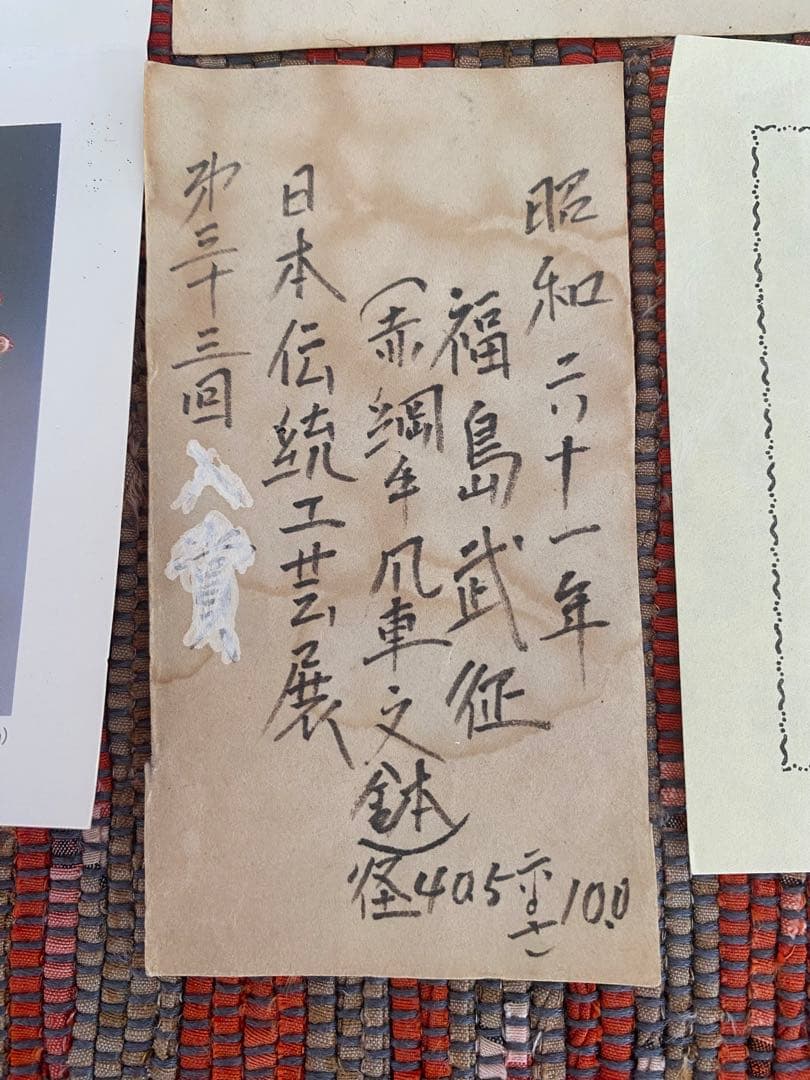 昭和六十一年
福島武征
(赤綱手風車文鉢)
径40.5 高さ10.0
日本伝統工芸展
第三十三回 入賞